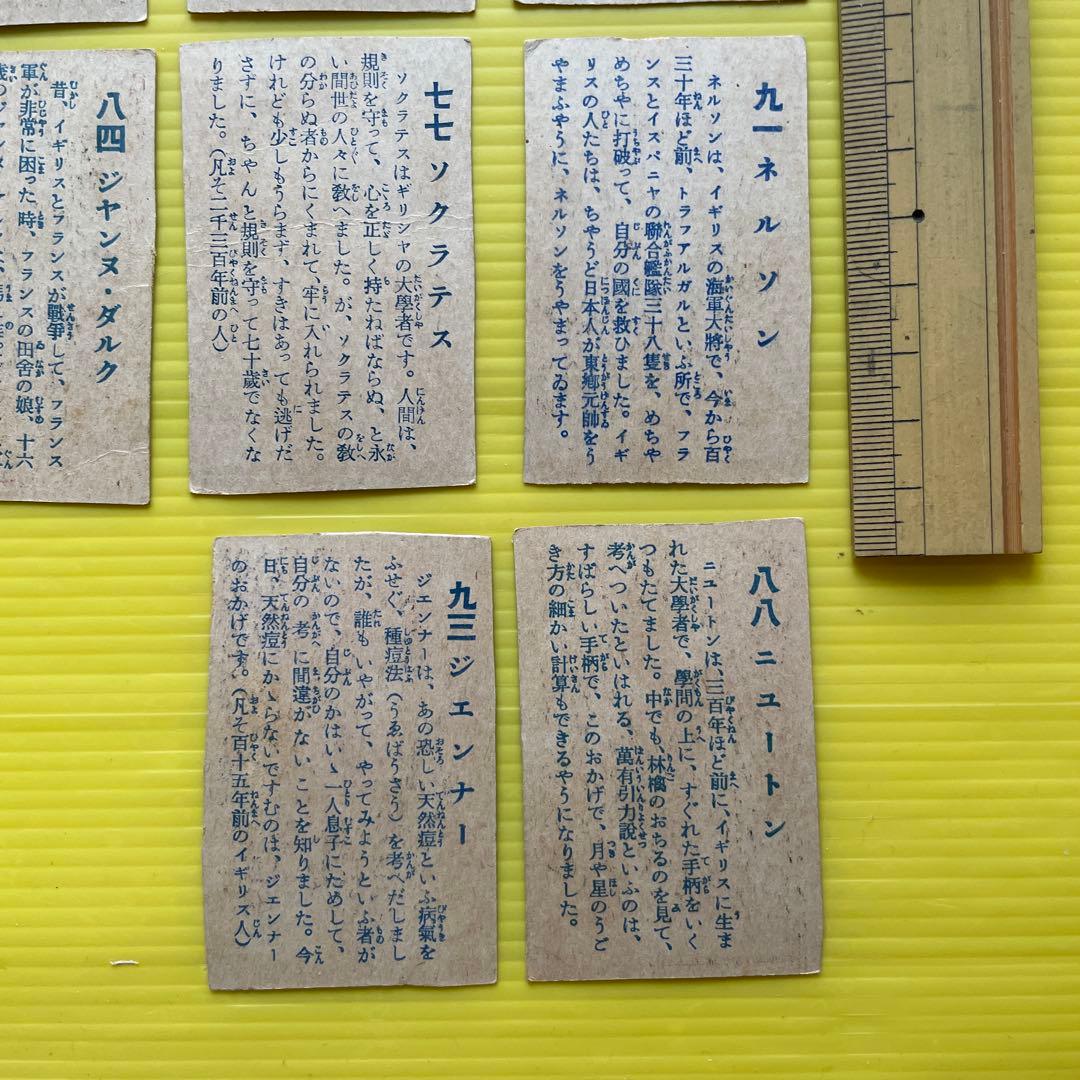 九一 ネルソン
ネルソンは、イギリスの海軍大將で、今から百
三十年ほど前、トラフアルガルといふ所で、フラ
ンスとイスパニヤの聯合艦隊三十八隻を、めちや
めちやに打破って、自分の國を救ひました。イギ
リスの人たちは、ちやうど日本人が東郷元帥をう
やまふやうに、ネルソンをうやまってゐます。
七七 ソクラテス
ソクラテスはギリシヤの大學者です。人間は、
規則を守って、心を正しく持たねばならぬ、と永
い間世の人々に教へました。が、ソクラテスの教
の分らぬ者からにくまれて、牢に入れられました。
けれども少しもうらまず、すきはあっても逃げだ
さずに、ちやんと規則を守って七十歳でなくな
りました。（凡そ二千三百年前の人）
八四 ジヤンヌ・ダルク
昔、イギリスとフランスが戰爭して、フランス
軍が非常に困った時、フランスの田舎の娘、十六
八八 ニユートン
ニユートンは、三百年ほど前に、イギリスに生ま
れた大學者で、學問の上に、すぐれた手柄をいく
つもたてました。中でも、林檎のおちるのを見て、
考へついたといはれる、萬有引力説といふのは、
すばらしい手柄で、このおかげで、月や星のうご
き方の細かい計算もできるやうになりました。
九三 ジエンナー
ジエンナーは、あの恐しい天然痘といふ病氣を
ふせぐ、種痘法（うゑばうさう）を考へだしまし
たが、誰もいやがって、やってみようといふ者が
ないので、自分のかはいゝ一人息子にためして、
自分の考に間違がないことを知りました。今
日、天然痘にかゝらないですむのは、ジエンナー
のおかげです。（凡そ百十五年前のイギリス人）